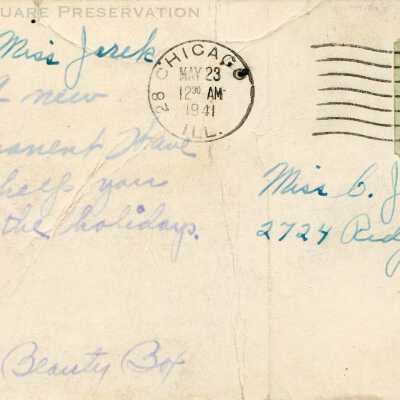 UARE PRESERVATION
Miss Jerek
A new
manent Wave
help you
the holidays.
Beauty Box
28 CHICAGO
MAY 23
12 30 AM
1941
ILL.
Miss C. J
2724 Ridg